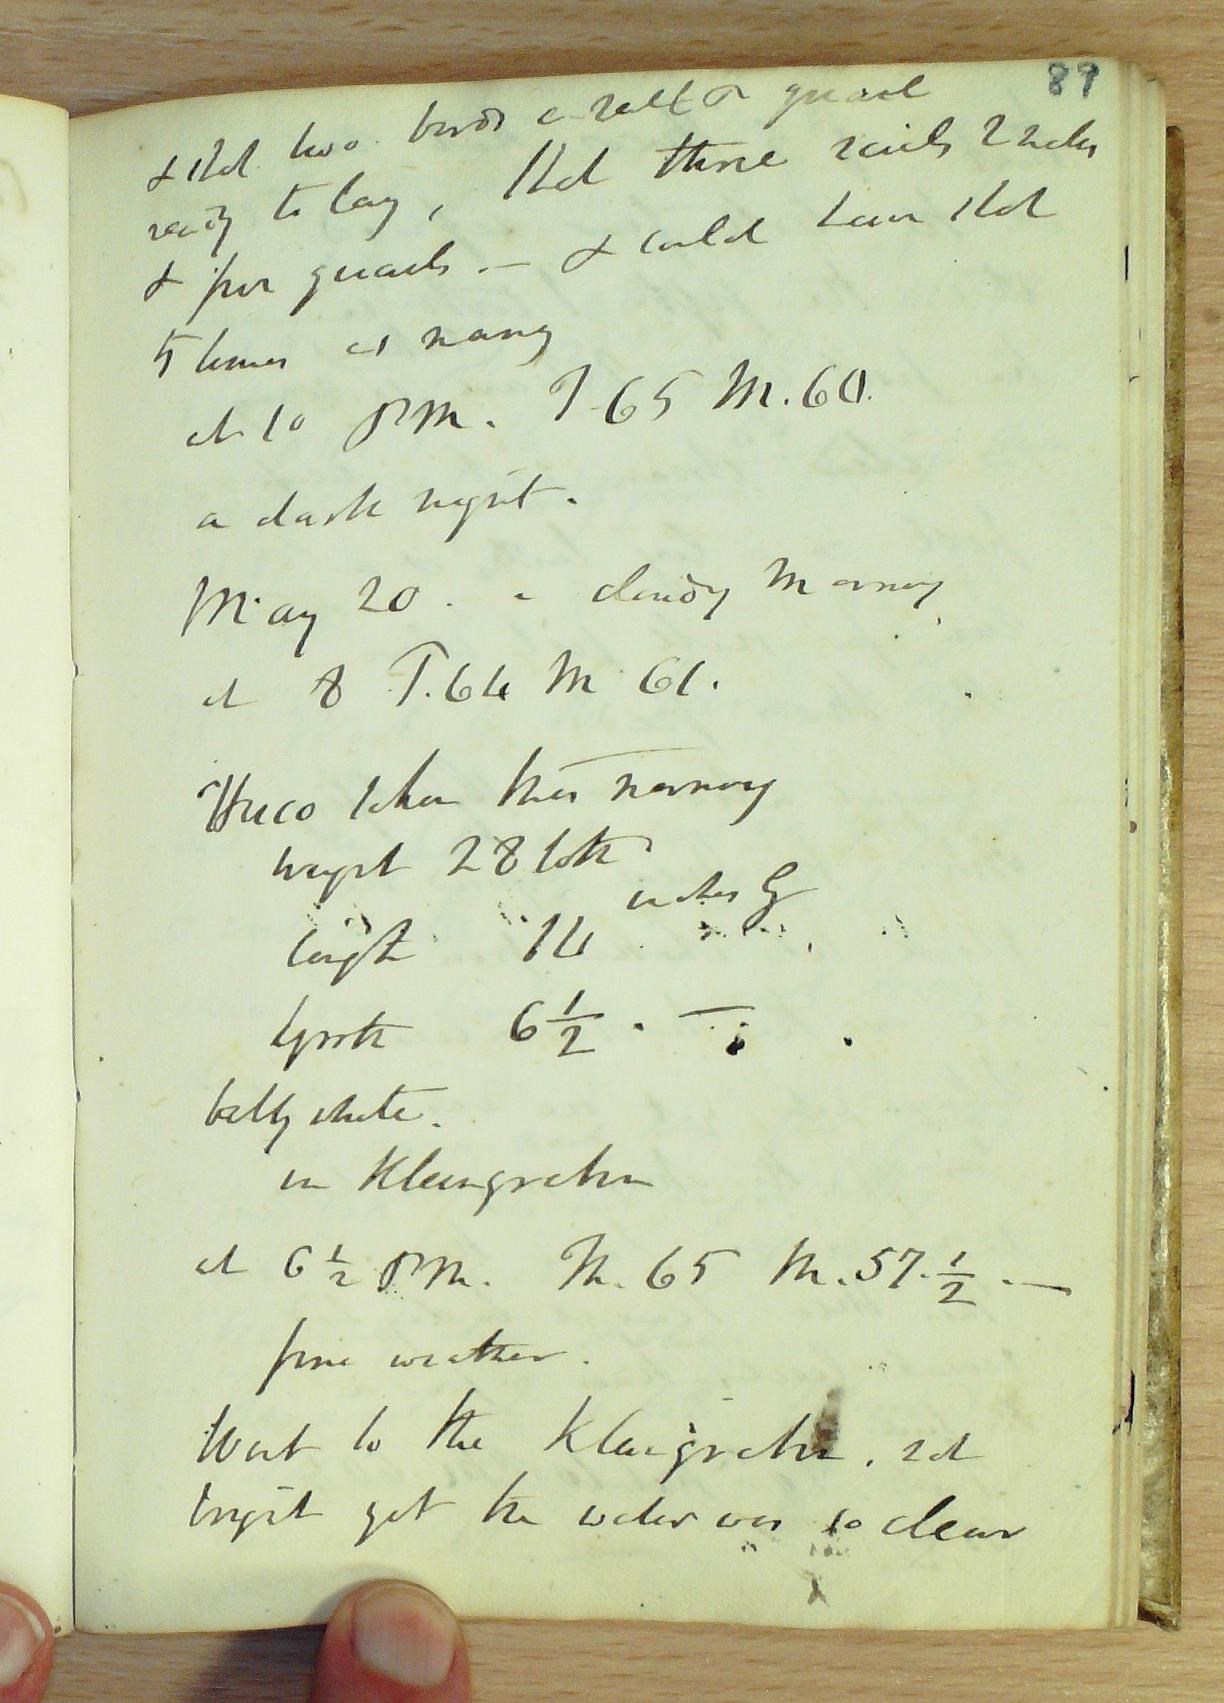 89
& shot two birds a rail & quail
ready to lay, shot three rails 2 snakes
& five quails. — & could have shot
5 times as many
at 10 PM. T 65 M. 60.
a dark night.
May 20. a cloudy Morning
at 8 T. 64 M 61.
Huco taken this morning
weight 28 loth
inches G
length 14
girth 6 1/2 . —
belly white.
in Kleingraben
at 6 1/2 PM. Th. 65 M. 57. 1/2 . —
fine weather.
Went to the Kleingraben, not
bright yet the water was so clear